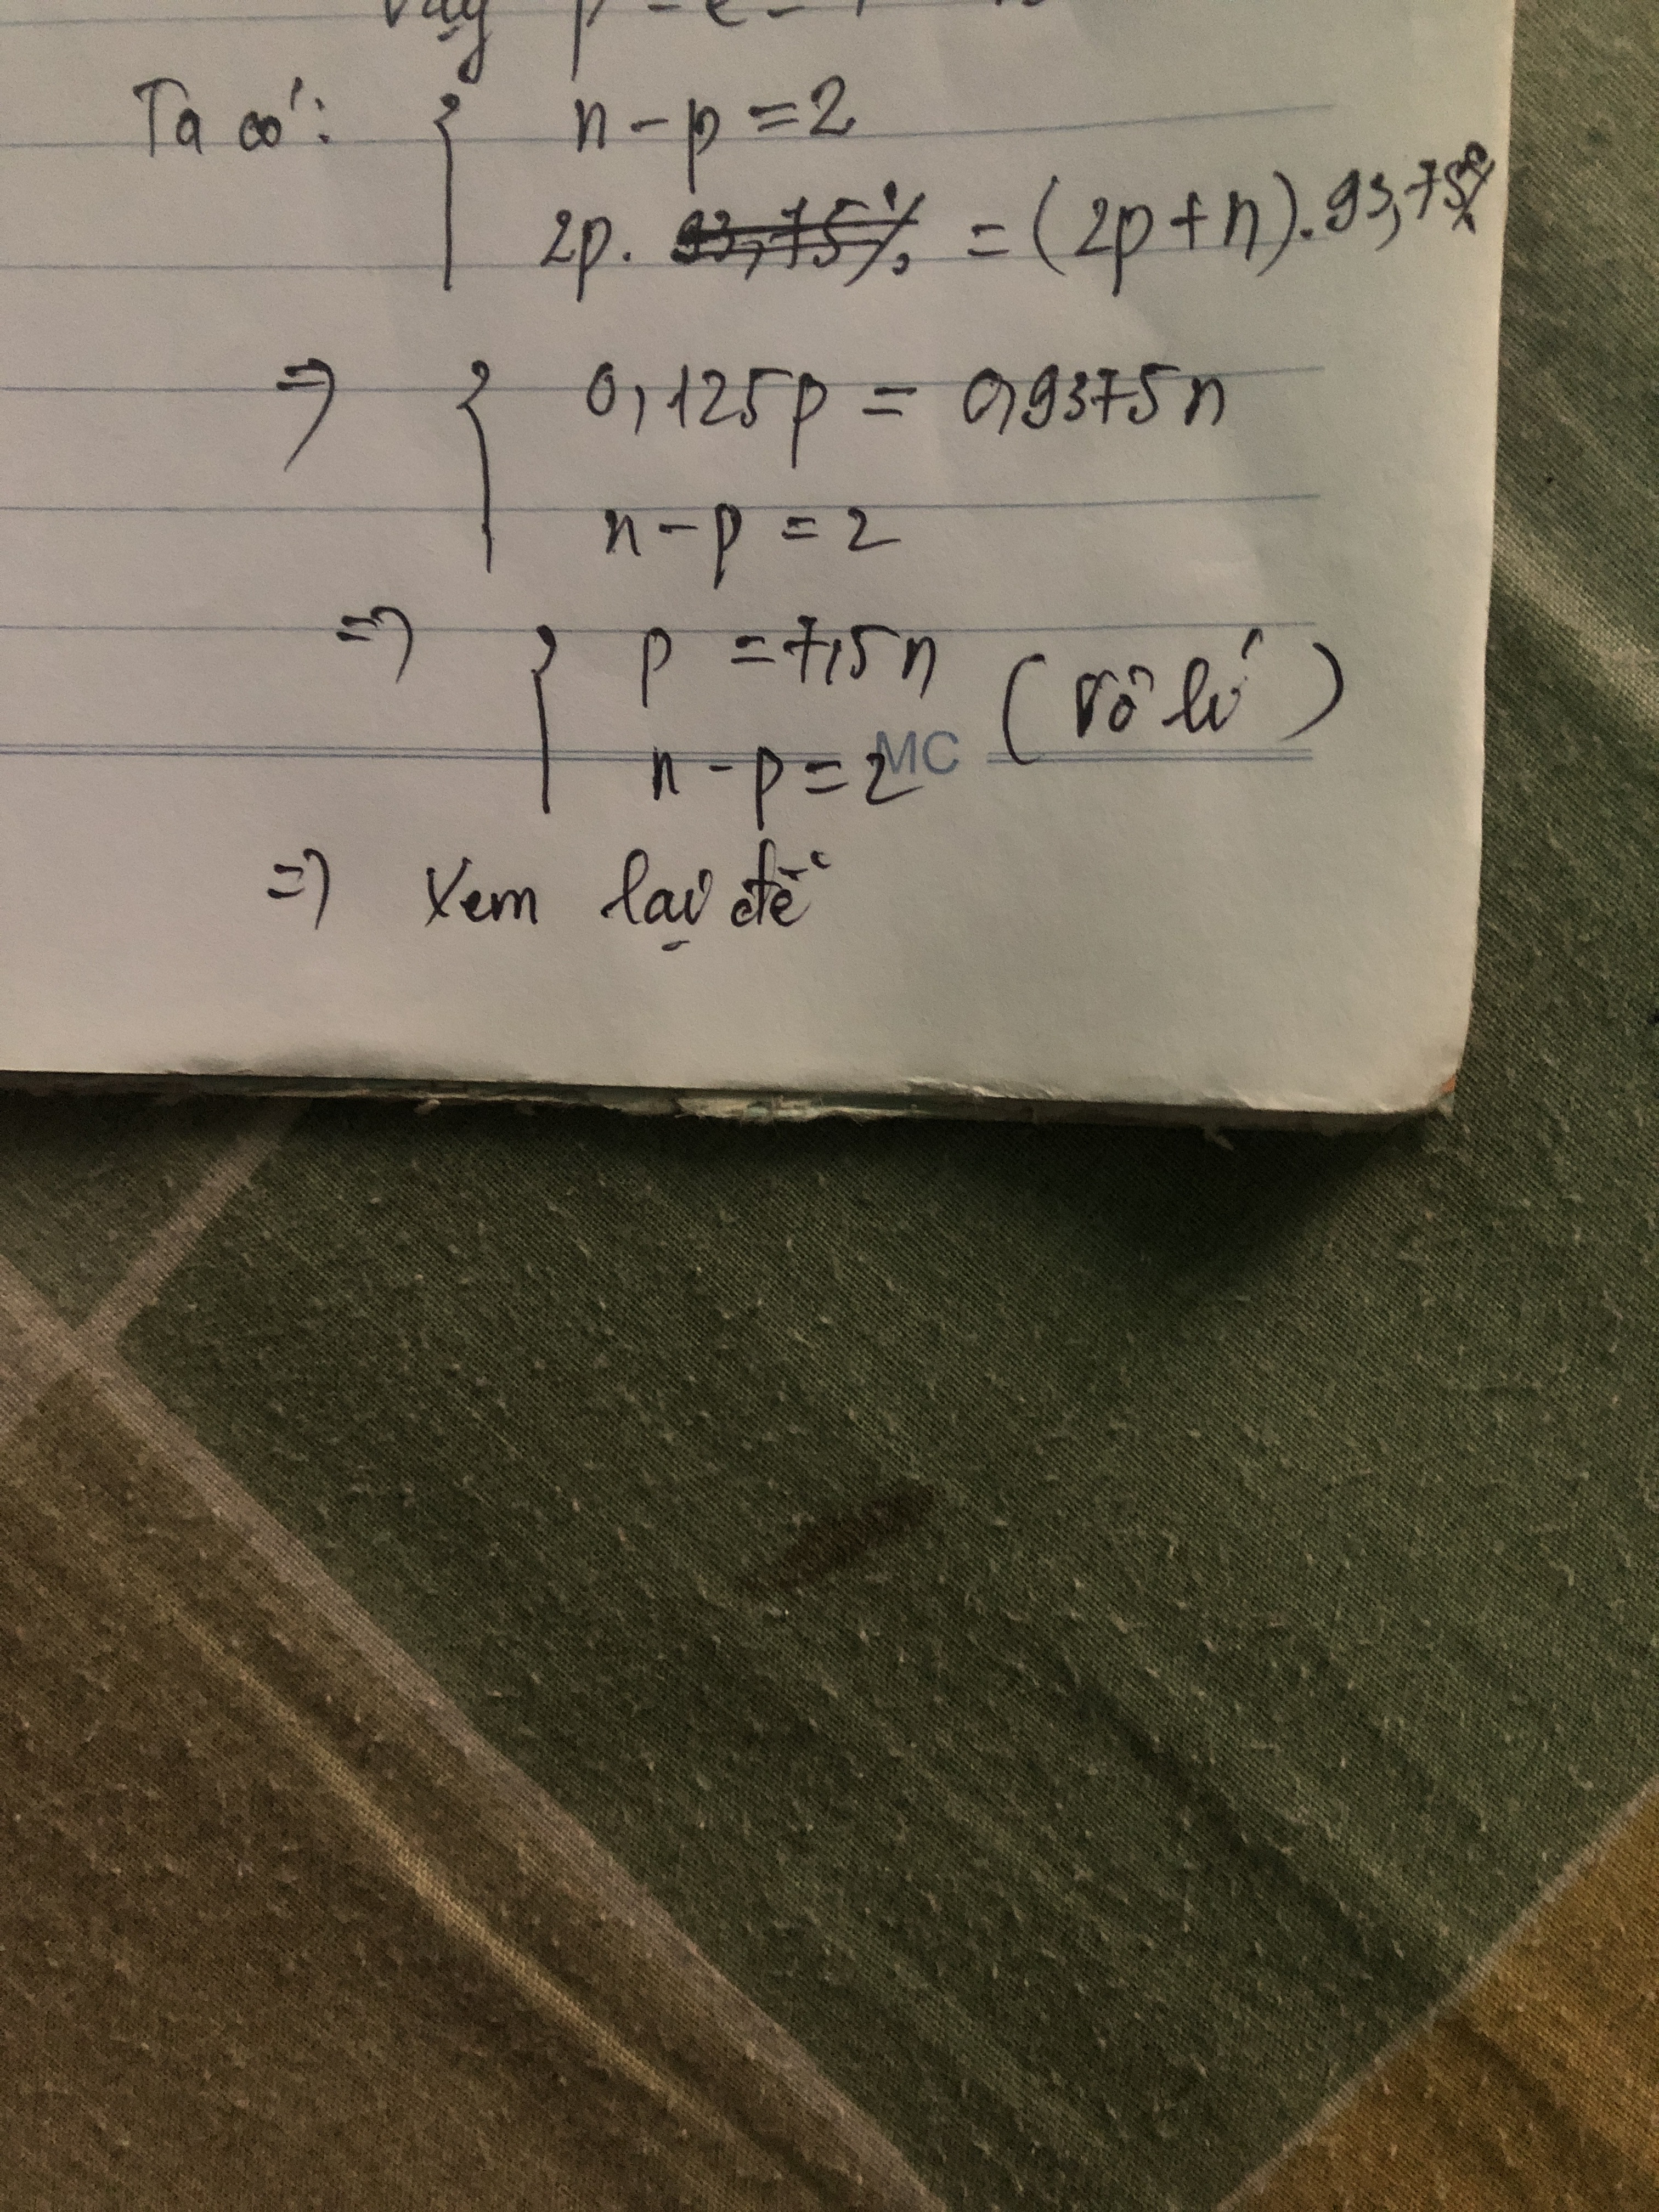 Vậy p = e =
Ta có: { n - p = 2
2p. 93,75% = (2p + n). 93,75%
=> { 0,125p = 0,9375n
n - p = 2
=> { p = 7,5n (Vô lí)
n - p = 2
MC
=> Xem lại đề